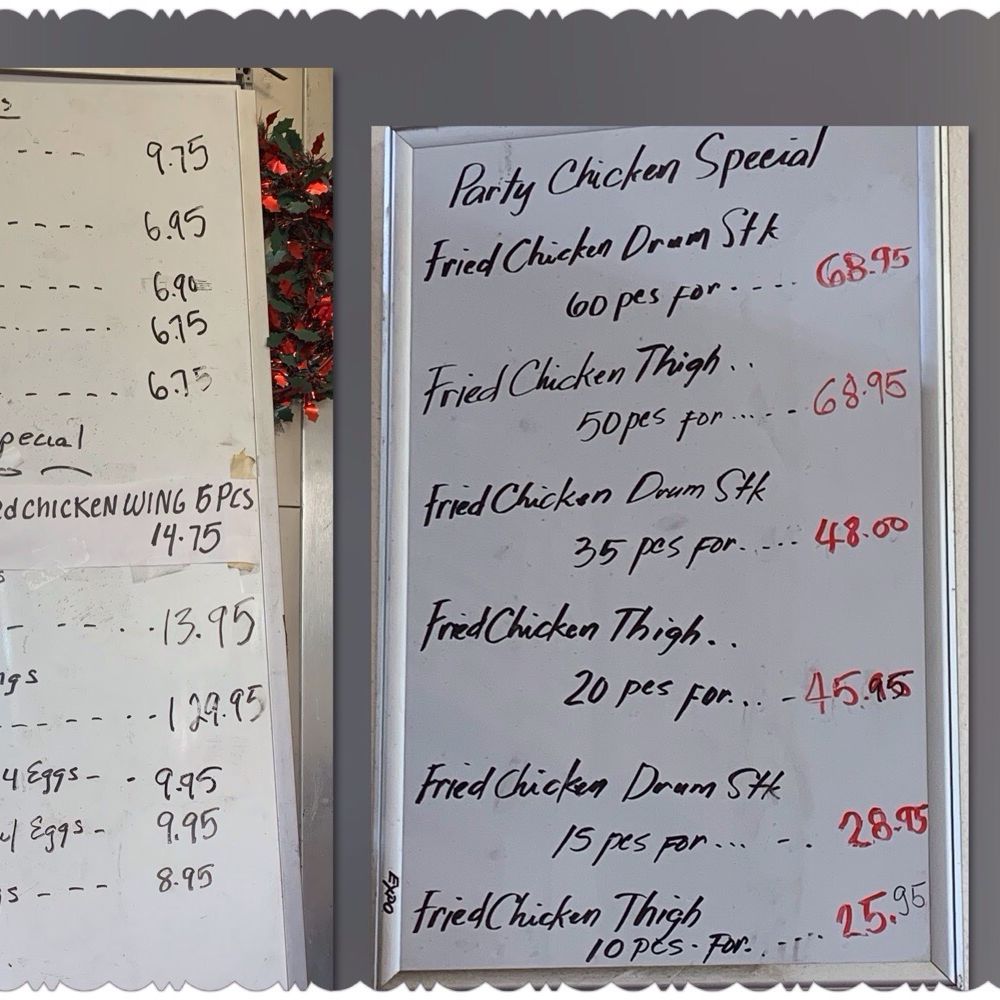 s
---- 9.75
---- 6.95
---- 6.90
---- 6.75
---- 6.75
pecial
ed CHICKEN WING 5 PCS
14.75
s
- --..-13.95
ngs
------..-129.95
4 Eggs- - 9.95
w/ Eggs- 9.95
s --- 8.95
Party Chicken Special
Fried Chicken Drum Stk
60 pcs for..... 68.95
Fried Chicken Thigh..
50 pcs for...... 68.95
Fried Chicken Drum Stk
35 pcs for..... 48.00
Fried Chicken Thigh..
20 pcs for... - 45.95
Fried Chicken Drum Stk
15 pcs for... -. 28.95
Fried Chicken Thigh 25.95
10 pcs. For. ....
EXPO